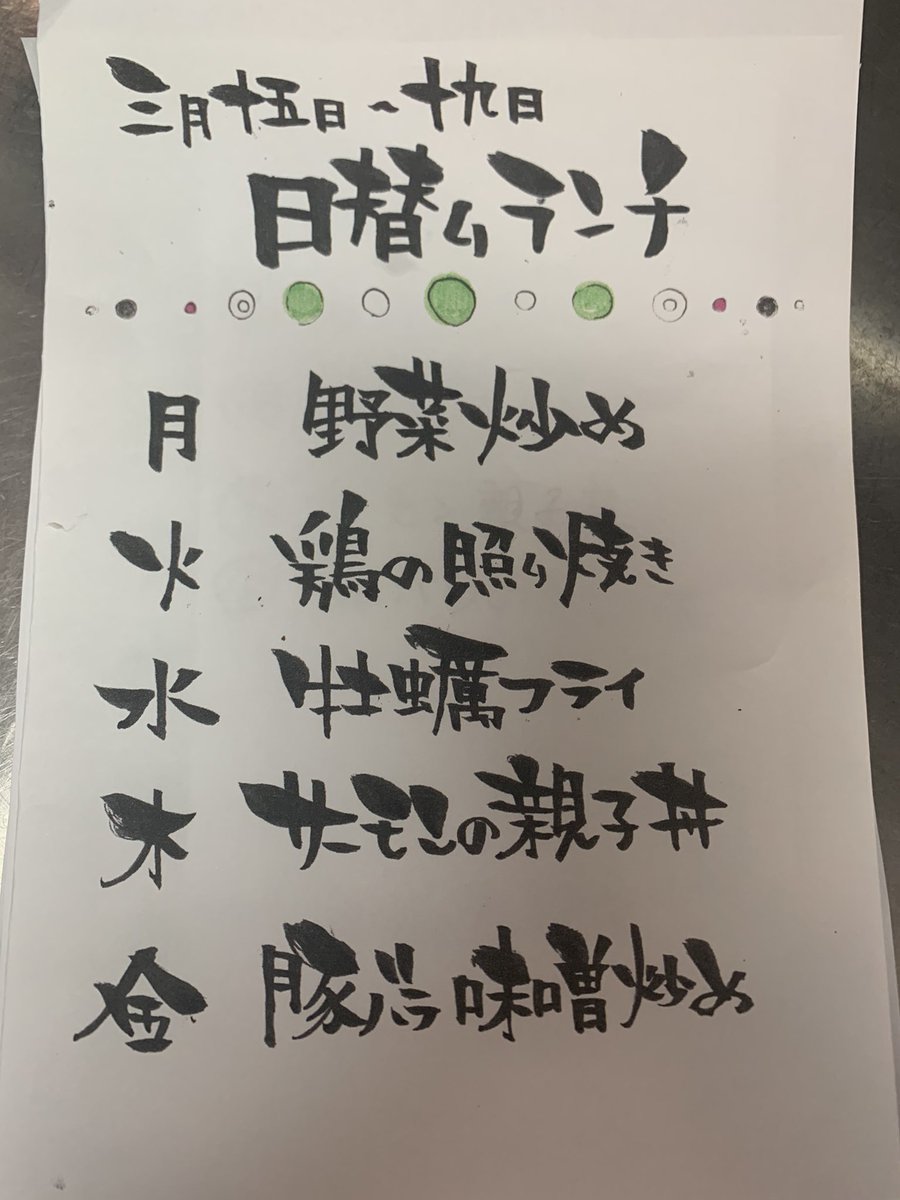 三月十五日~十九日
日替りランチ
月 野菜炒め
火 鶏の照り焼き
水 牡蠣フライ
木 サーモンの親子丼
金 豚バラ味噌炒め